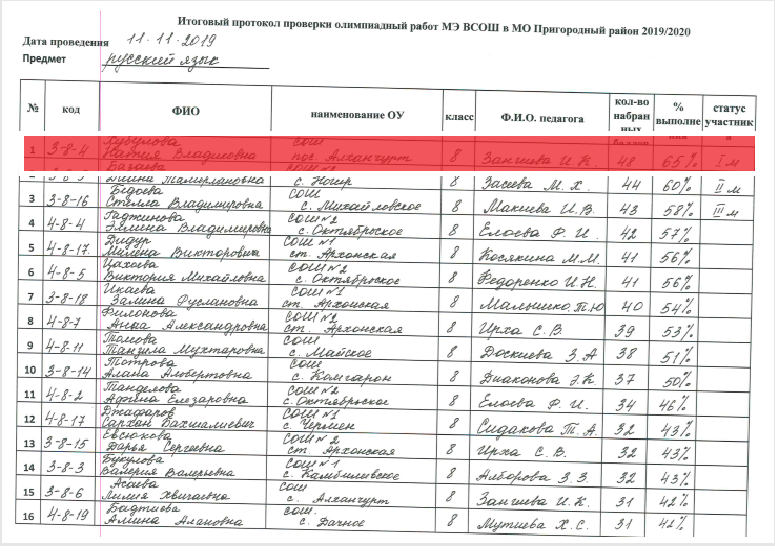 Итоговый протокол проверки олимпиадный работ МЭ ВСОШ в МО Пригородный район 2019/2020
Дата проведения 11-11-2019
Предмет русский язык
№ код ФИО наименование ОУ класс Ф.И.О. педагога кол-во набран ных % выполне статус участник
1 3-8-4 Хубулова СОШ
Владиевна пос. Алханчурт 8 Зангиева И.К. 48 65% I м
Тамирлановна с. Ногир 8 Засеева М.Х. 44 60% II м
3 3-8-16 Бедоева СОШ
Стелла Владимировна с. Михайловское 8 Макеева И.В. 43 58% III м
4 4-8-4 Гаджинова СОШ №2
Элина Владимировна с. Октябрьское 8 Елоева Ф.И. 42 57%
5 4-8-17. Дидур СОШ №1
Милена Викторовна ст. Архонская 8 Косякина М.М. 41 56%
6 4-8-5 Цахоева СОШ №2
Виктория Михайловна с. Октябрьское 8 Федоренко И.Н. 41 56%
7 3-8-18 Икаева СОШ №1
Залина Руслановна ст. Архонская 8 Малышко Т.Ю 40 54%
8 4-8-7 Филонова СОШ №2
Анна Александровна ст. Архонская 8 Ирха С.В. 39 53%
9 4-8-11 Томова СОШ
Танзила Мухтаровна с. Майское 8 Доскиева З.А 38 51%
10 3-8-14 Тотрова СОШ
Алана Альбертовна с. Комгарон 8 Диаконова Э.К. 37 50%
11 4-8-2 Танделова СОШ №2
Афина Елизаровна с. Октябрьское 8 Елоева Ф.И. 34 46%
12 4-8-17 Джафаров СОШ №1
Сархан Бахшалиевич с. Чермен 8 Сидакова Т.А. 32 43%
13 3-8-15 Евсюкова СОШ №2
Дарья Сергеевна ст. Архонская 8 Ирха С.В. 32 43%
14 3-8-3 Букулова СОШ №1
Валерия Валерьевна с. Камбилеевское 8 Алборова З.З 32 43%
15 3-8-6 Асаева СОШ.
Лилия Хвичаевна с. Алханчурт 8 Зангиева И.К. 31 42%
16 4-8-19 Бадтиева СОШ.
Алина Алановна с. Дачное 8 Мутиева Х.С. 31 42%